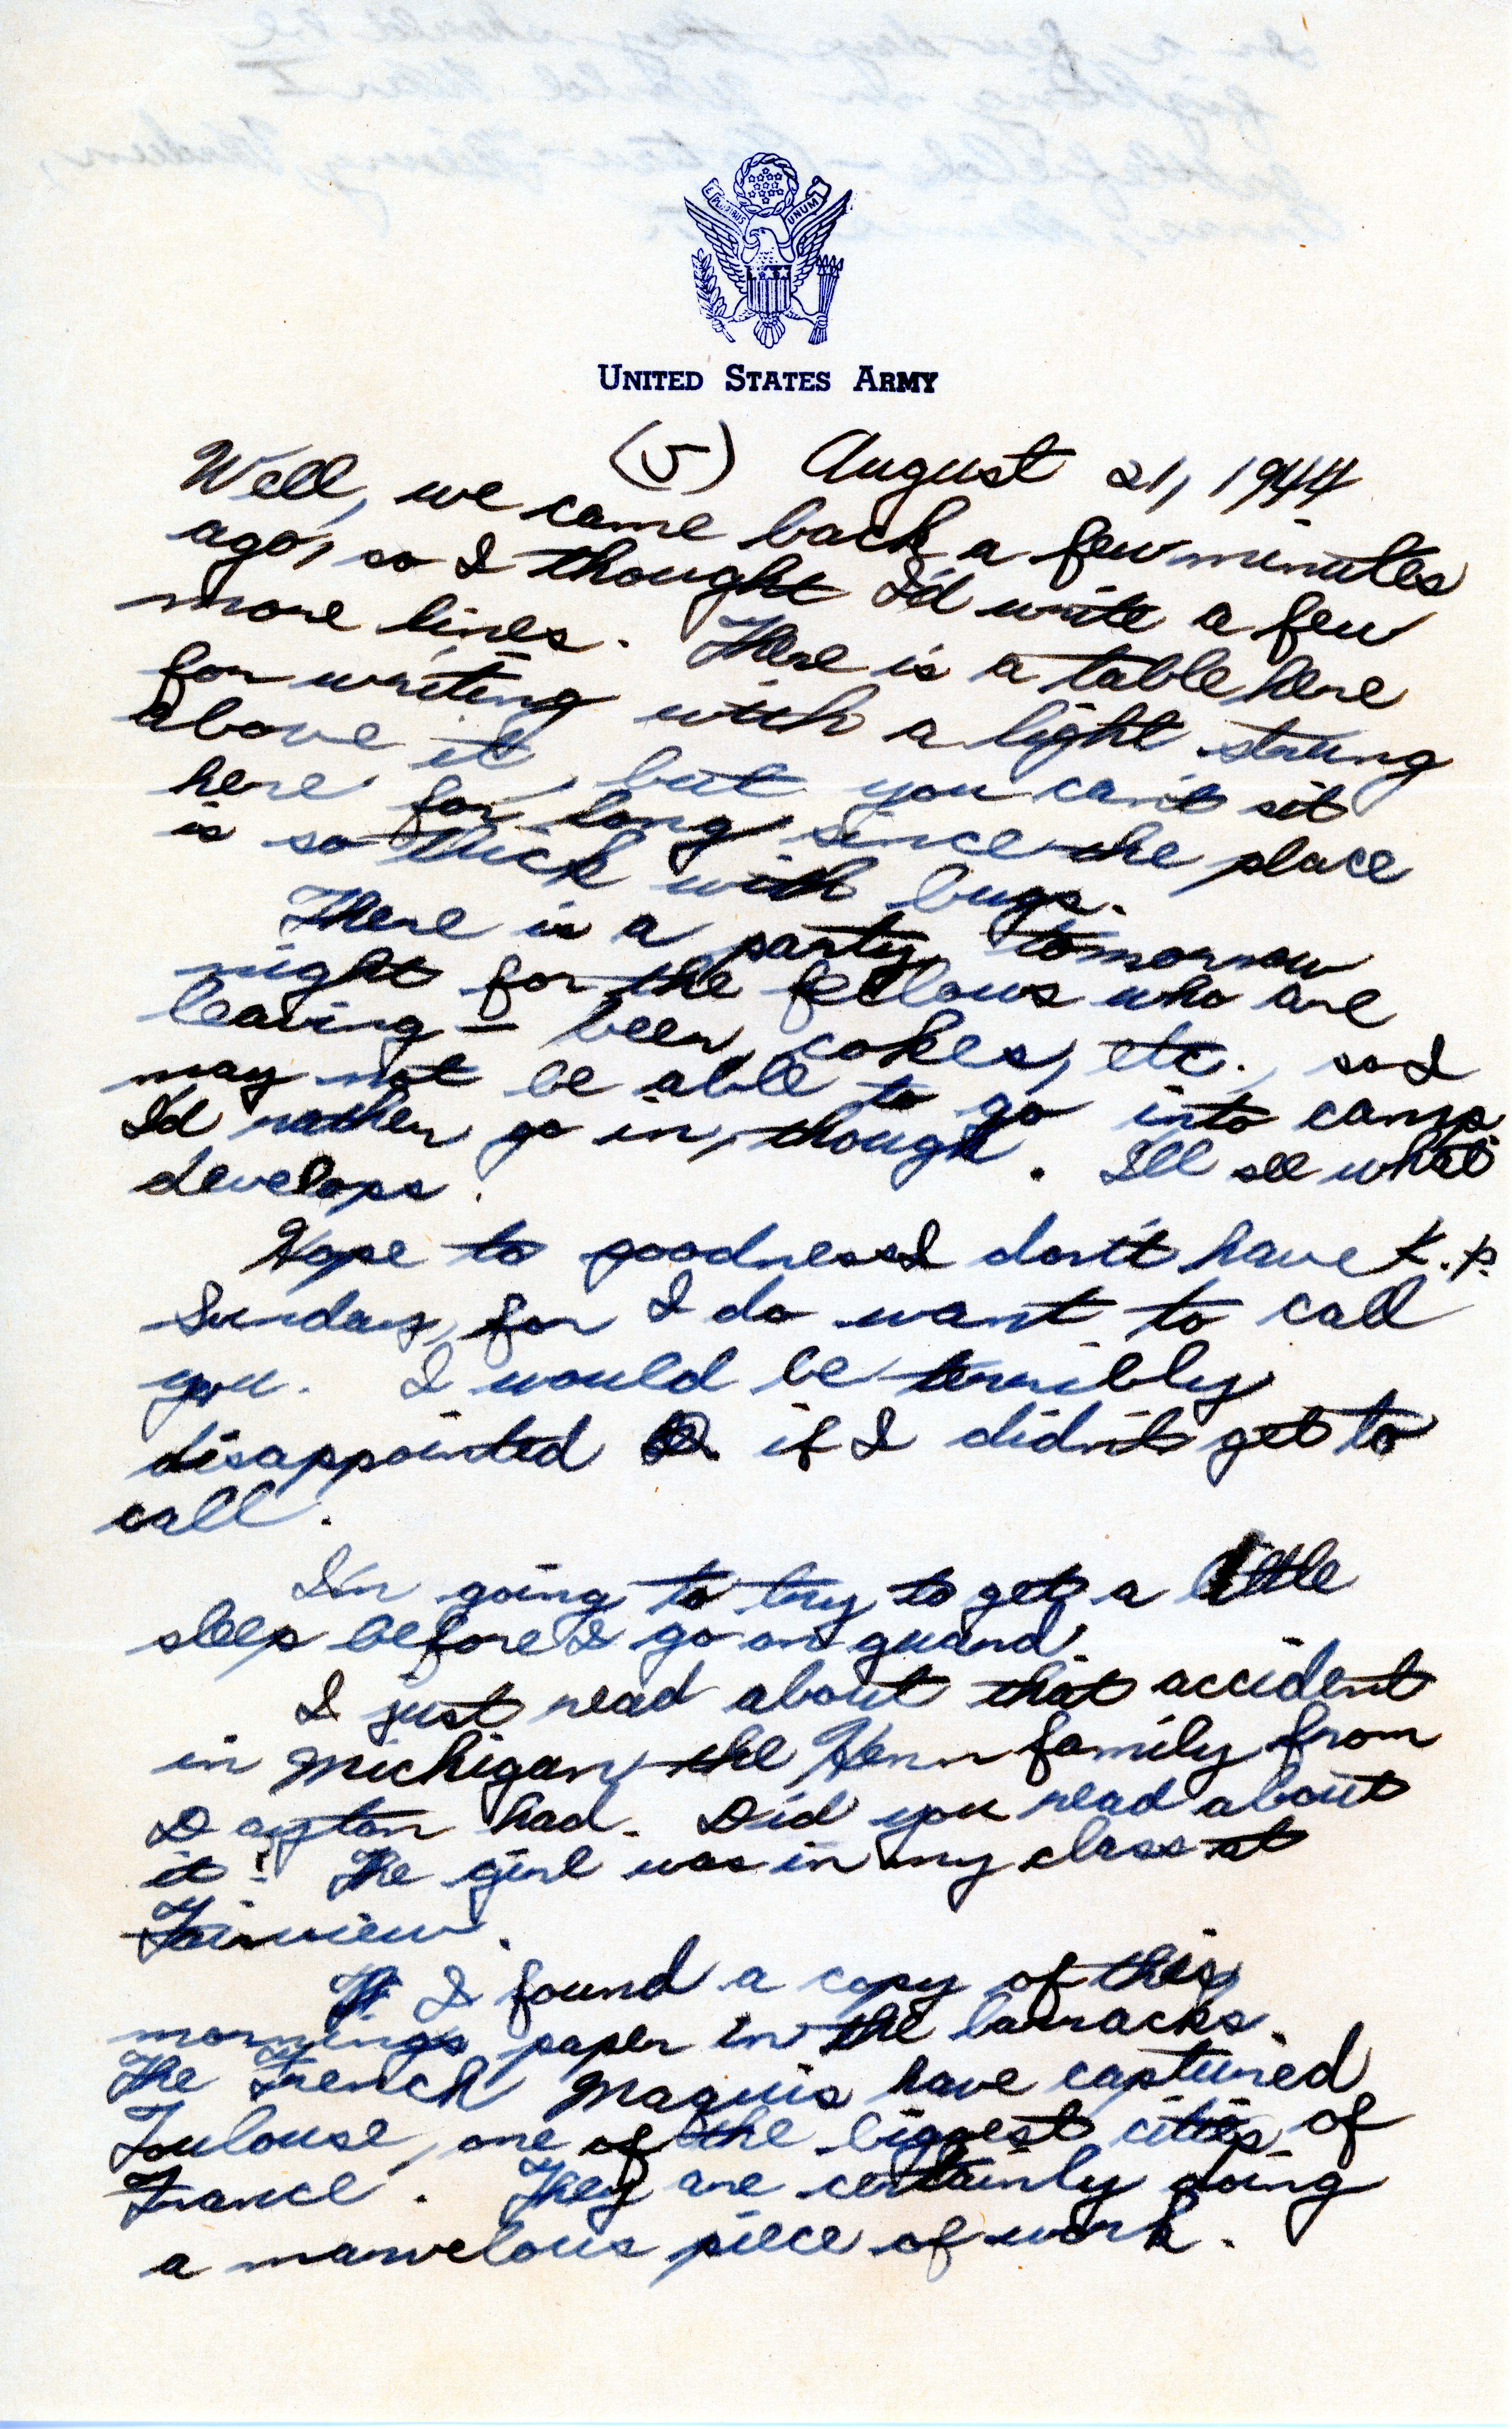 E PLURIBUS UNUM
UNITED STATES ARMY
(5) August 21, 1944
Well, we came back a few minutes
ago, so I thought I'd write a few
more lines. There is a table here
for writing with a light strung
above it, but you can't sit
here for long since the place
is so thick with bugs.
There is a party tomorrow
night for the fellows who are
leaving – beer, cokes, etc., so I
may not be able to go into camp.
I'd rather go in, though. I'll see what
develops.
Hope to goodness I don't have K.P.
Sunday, for I do want to call
you. I would be terribly
disappointed if I didn't get to
call.
I'm going to try to get a little
sleep before I go on guard.
I just read about that accident
in Michigan the Henn family from
Dayton had. Did you read about
it? The girl was in my class at
Fairview.
I found a copy of this
morning's paper in the barracks.
The French Maquis have captured
Toulouse, one of the biggest cities of
France. They are certainly doing
a marvelous piece of work.